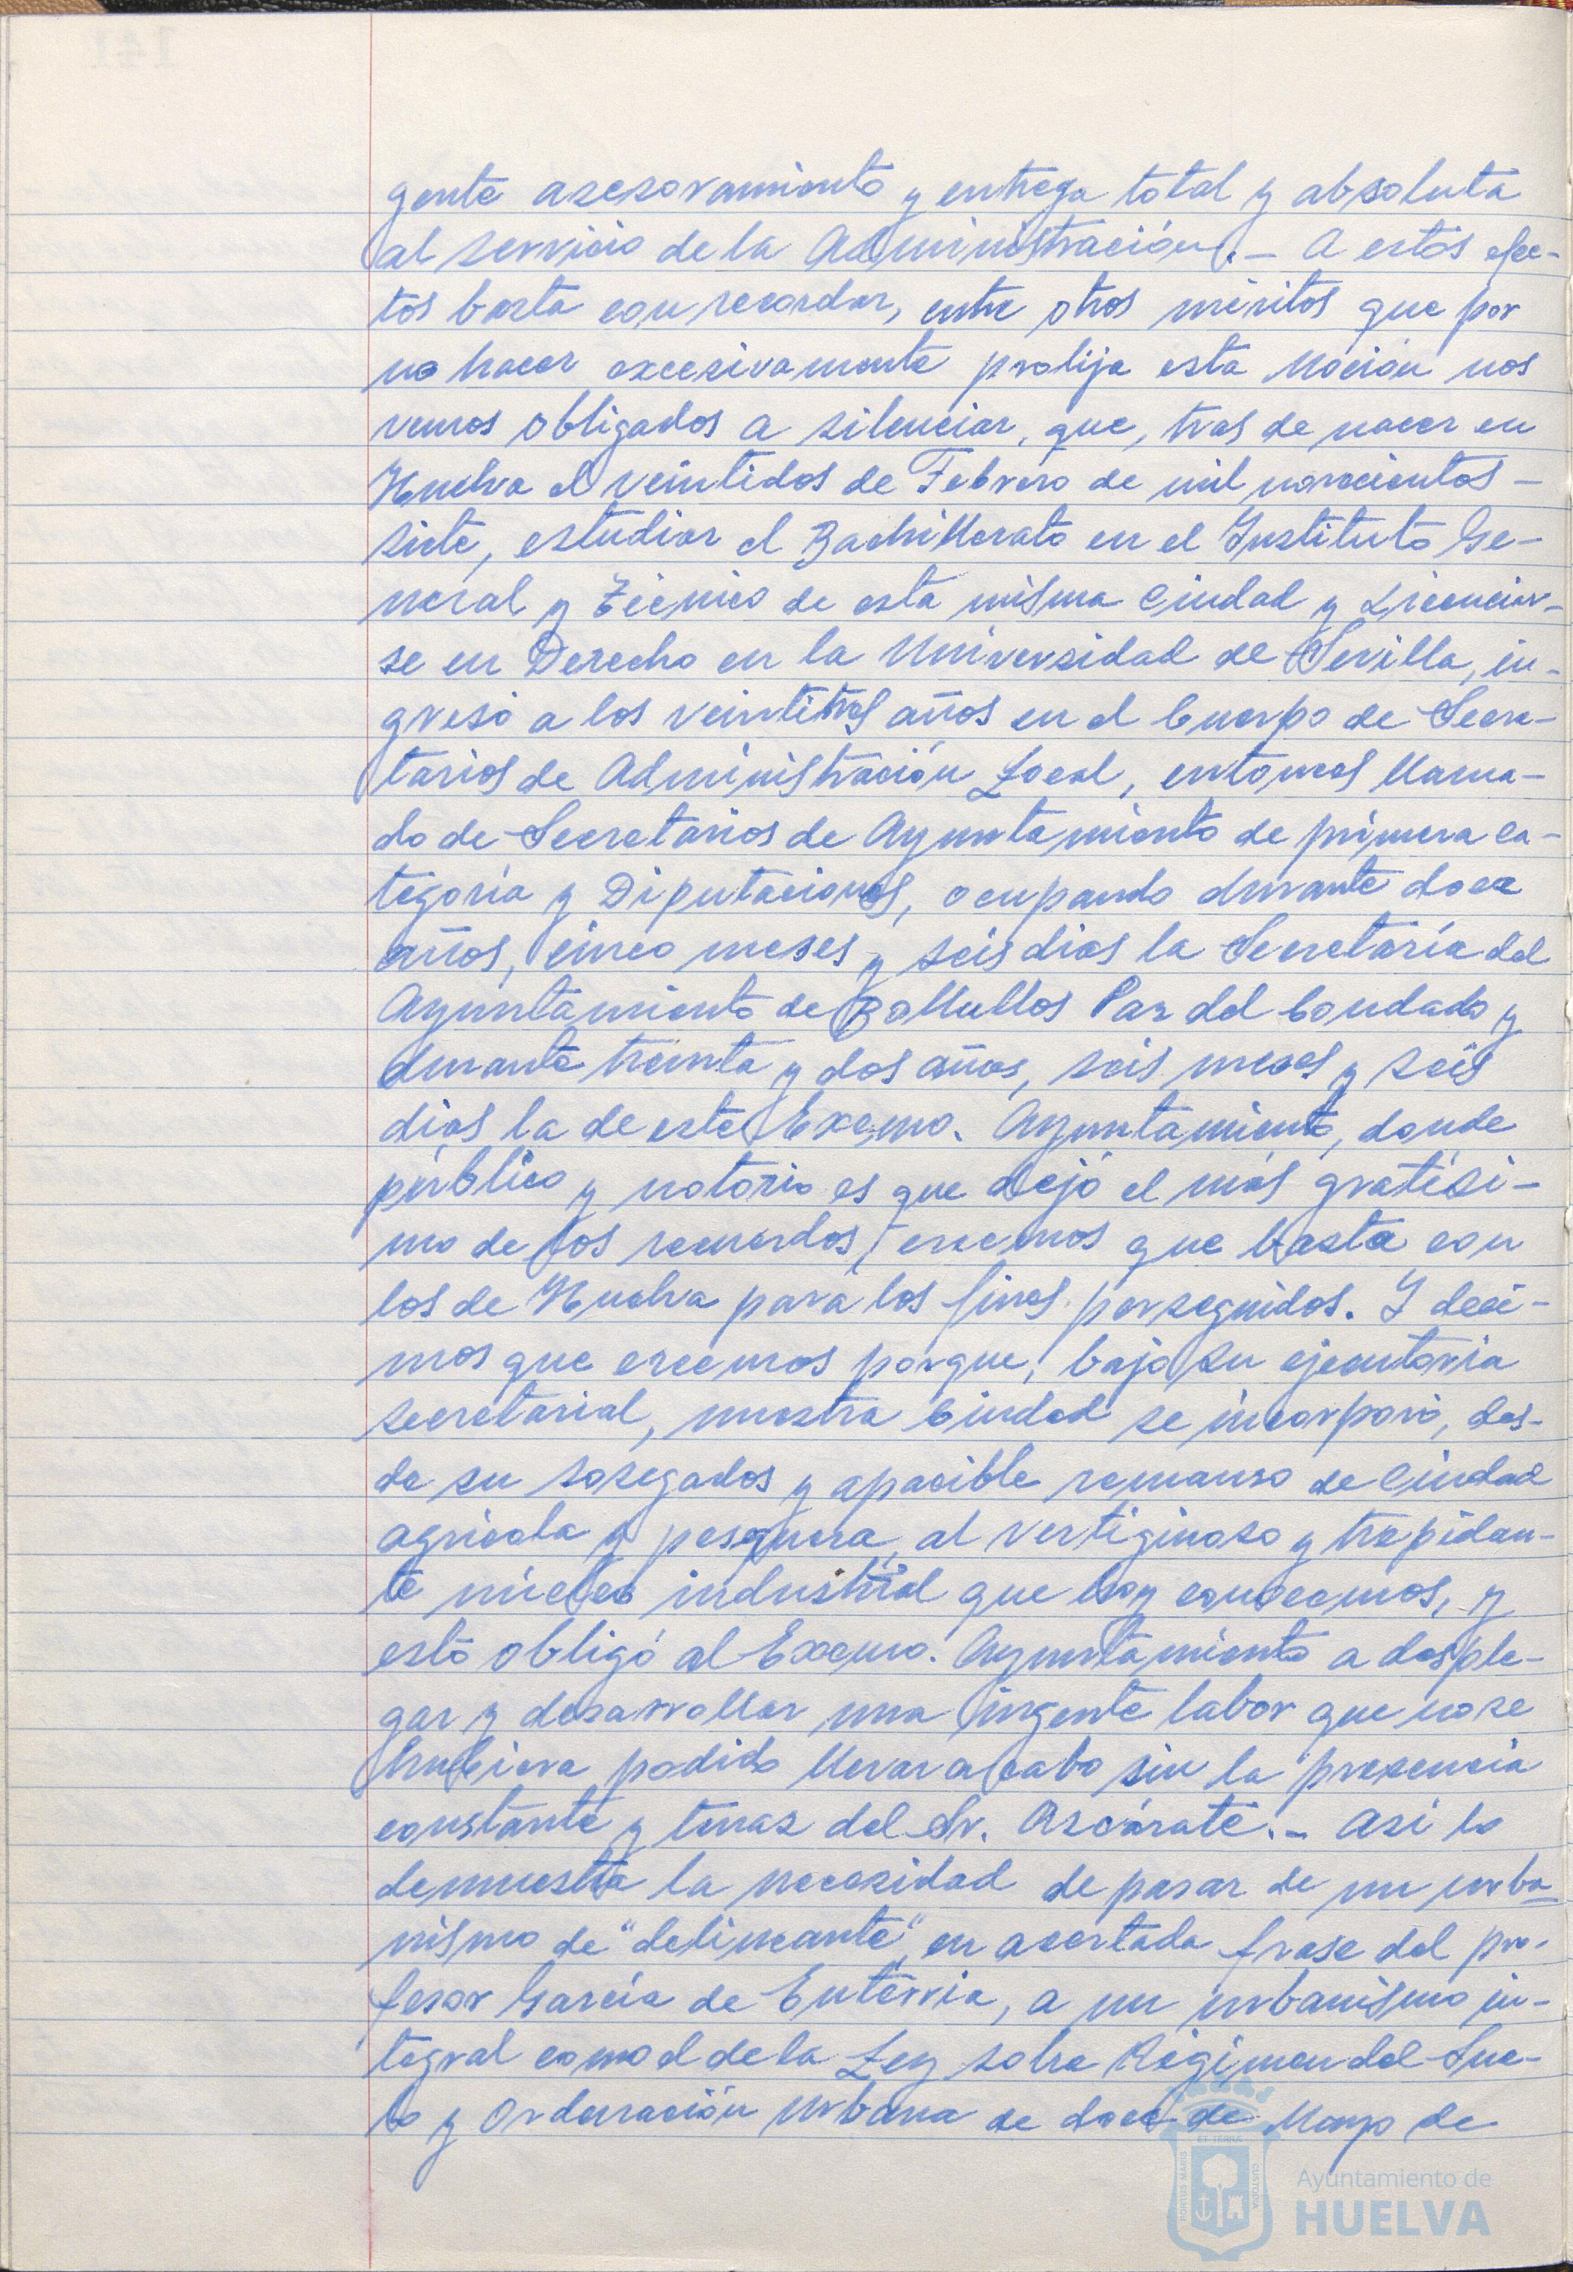 gente asesoramiento y entrega total y absoluta
al servicio de la Administración.- A estos efec-
tos basta con recordar, entre otros méritos que por
no hacer excesivamente prolija esta Moción nos
vemos obligados a silenciar, que, tras de nacer en
Huelva el veintidos de Febrero de mil novecientos -
siete, estudiar el Bachillerato en el Instituto Ge-
neral y Técnico de esta misma Ciudad y Licenciar-
se en Derecho en la Universidad de Sevilla, in-
gresó a los veintitres años en el Cuerpo de Secre-
tarios de Administración Local, entonces llama-
do de Secretarios de Ayuntamiento de primera ca-
tegoría y Diputaciones, ocupando durante doce
años, cinco meses y seis dias la Secretaría del
Ayuntamiento de Bollullos Par del Condado y
durante treinta y dos años, seis meses y seis
dias la de este Excmo. Ayuntamiento, donde
público y notorio es que dejó el más gratísi-
mo de los recuerdos, creemos que basta con
los de Huelva para los fines perseguidos. Y deci-
mos que creemos porque, bajo su ejecutoria
secretarial, nuestra Ciudad se incorporó, des-
de su sosegados y apacible remanso de Ciudad
agricola y pesquera, al vertiginoso y trepidan-
te núcleo industrial que hoy conocemos, y
esto obligó al Excmo. Ayuntamiento a desple-
gar y desarrollar una ingente labor que no se
hubiera podido llevar a cabo sin la presencia
constante y tenaz del Sr. Azcárate.- Asi lo
demuestra la necesidad de pasar de un urba-
nismo de "delineante", en acertada frase del pro-
fesor García de Enterria, a un urbanismo in-
tegral como el de la Ley sobre Régimen del Sue-
lo y Ordenación Urbana de doce de Mayo de
PORTUS MARIS ET TERRAE CUSTODIA
Ayuntamiento de
HUELVA